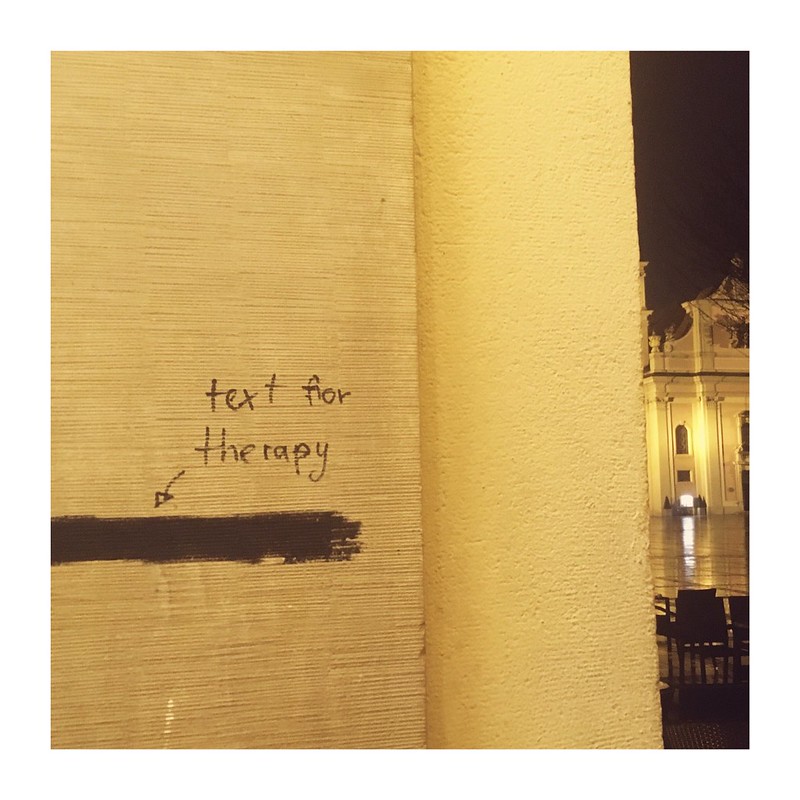 text for
therapy